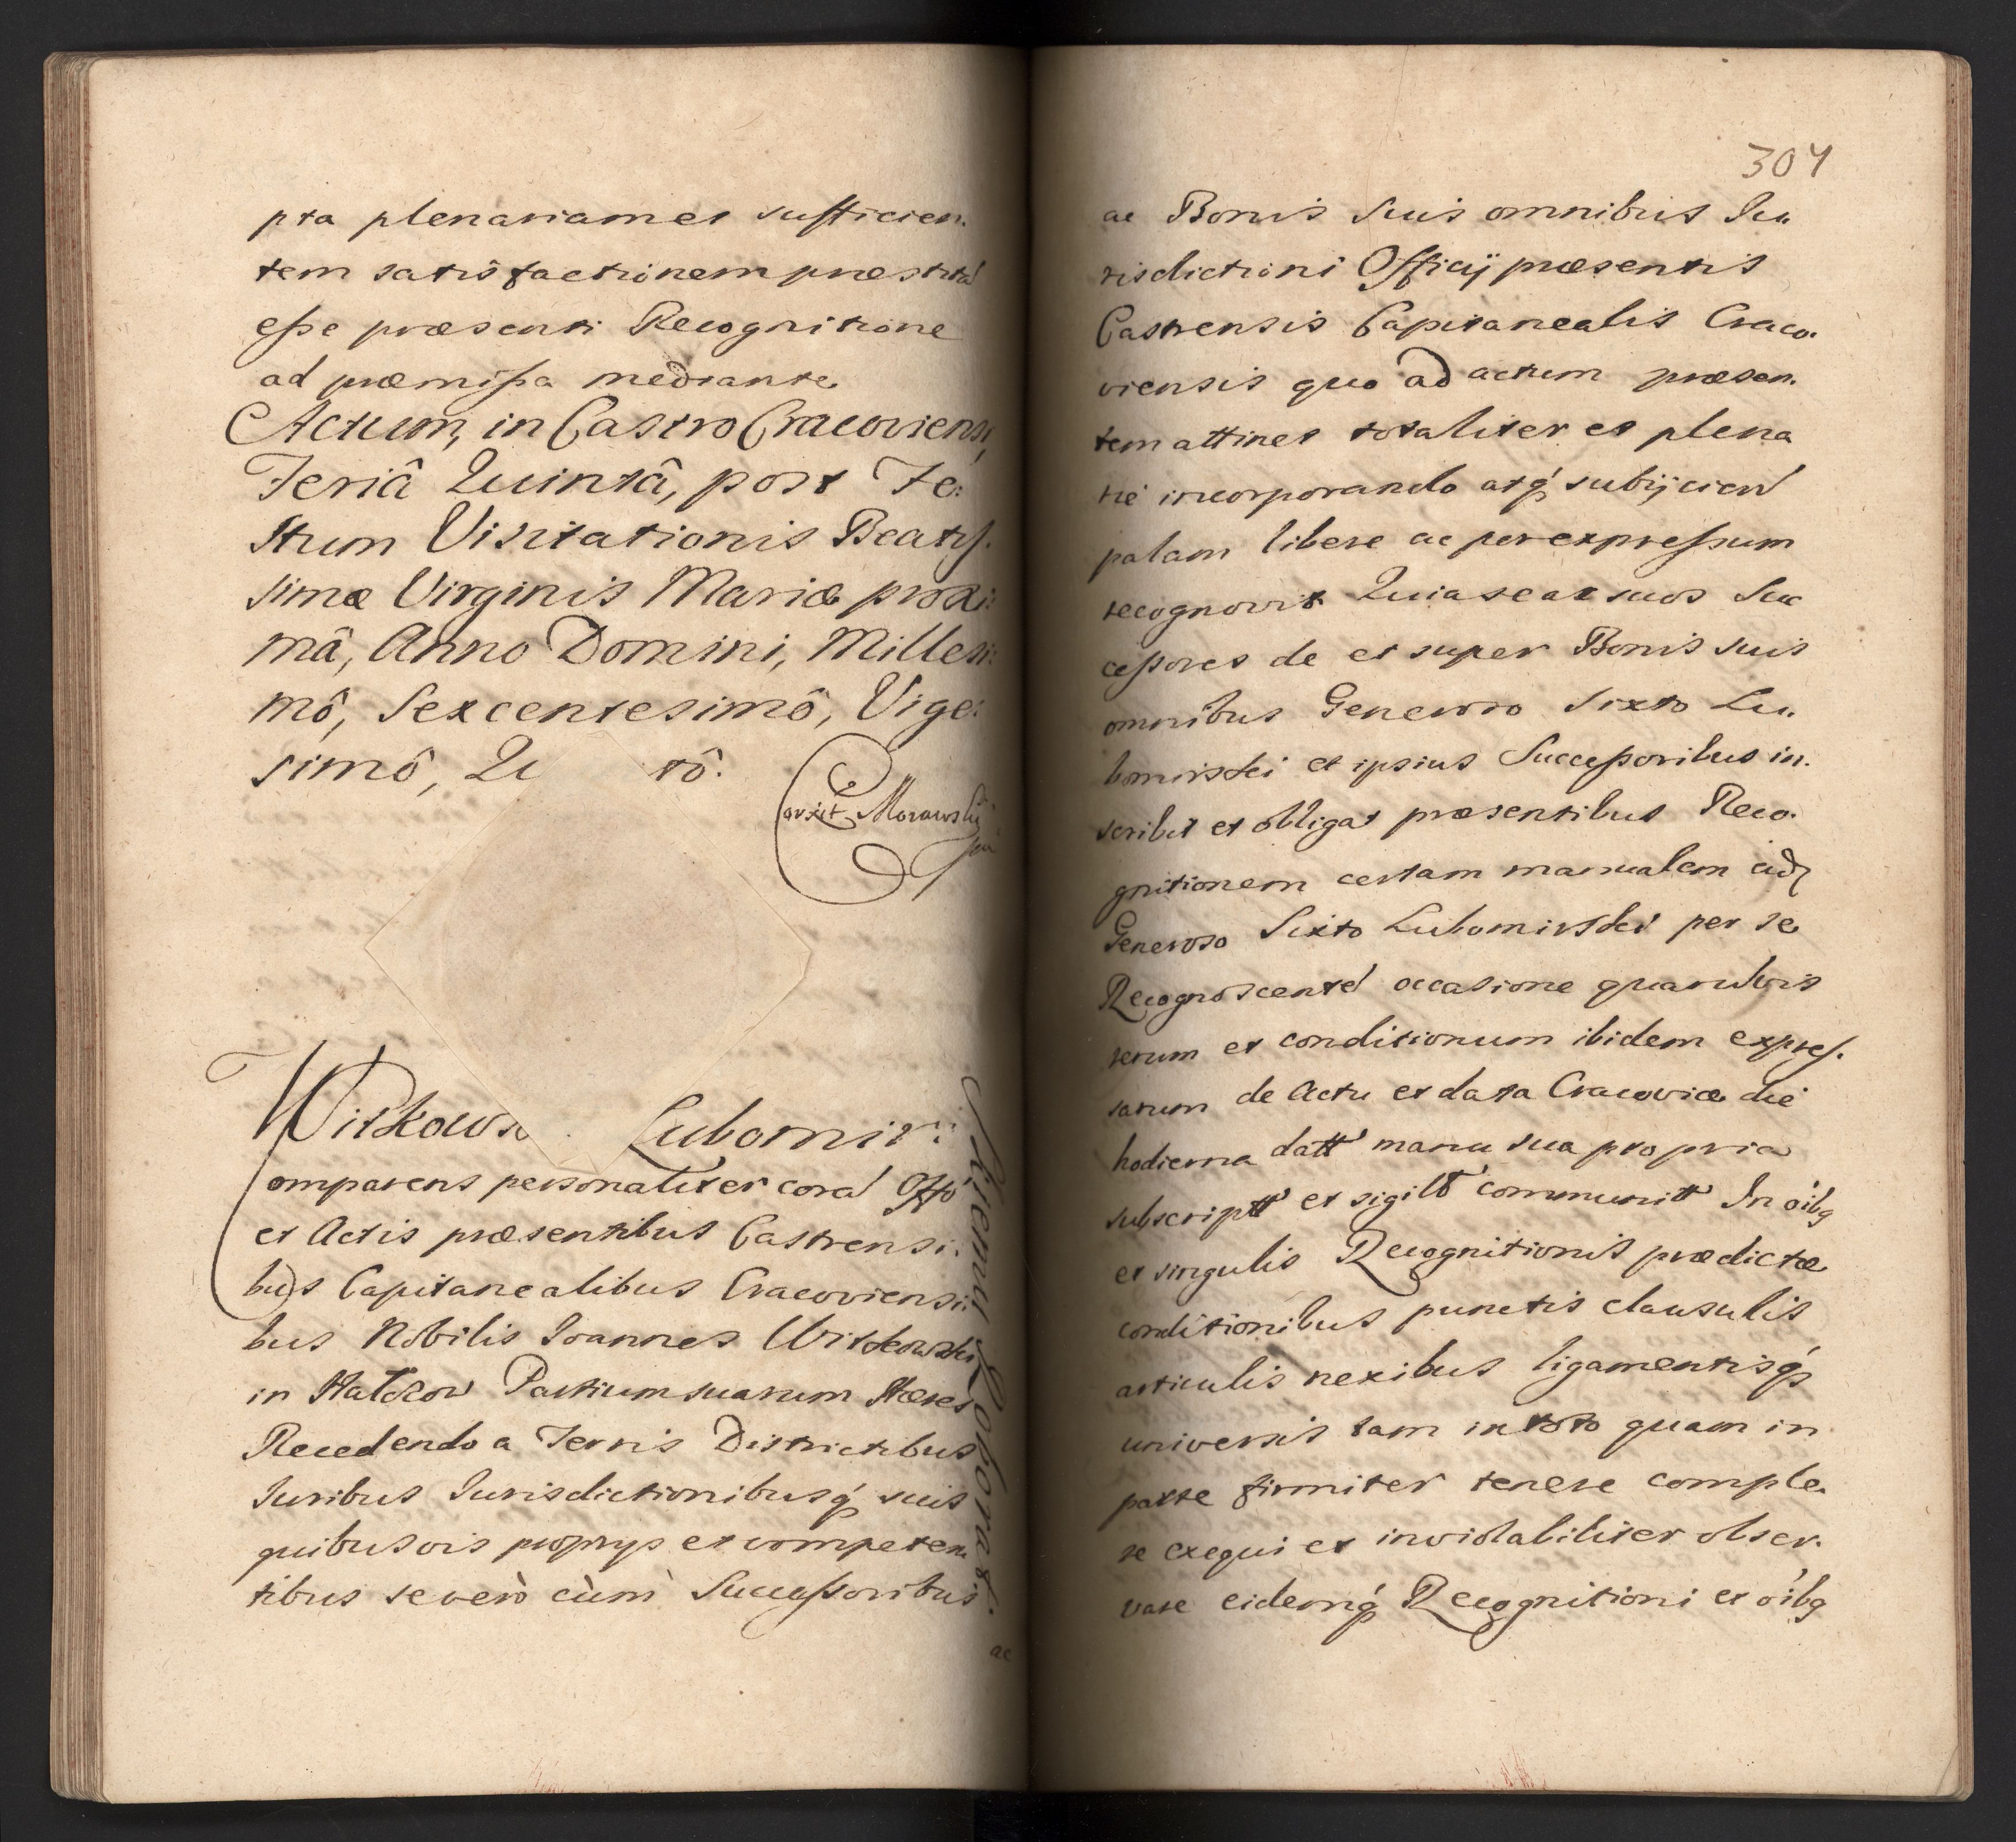 pta plenariam et sufficien.
tem satisfactionem præstitã
eſse præsenti Recognitione
ad præmiſsa mediante
Actum, in Castro Cracoviensi,
Feriâ Quintâ, post Fe:
stum Visitationis Beatiſ.
simæ Virginis Mariæ proxi:
mâ, Anno Domini, Millesi:
mô, Sexcentesimô, Vige:
simô, Qu tô.
Corxit Morawski
Witkowski Lubomir:
Comparens personaliter corã Offõ
et Actis præsentibus Castrensi:
bus Capitanealibus Cracoviensi:
bus Nobilis Joannes Witkowski
in Halckow Partium suarum Hæres
Recedendo a Terris Districtibus
Juribus Jurisdictionibusq́ suis
quibusvis proprys et competen
tibus se verò cùm Succeſsoribus
ac
Roborat.
304
ac Bonis suis omnibus Ju
risdictioni Officij præsentis
Castrensis Capitanealis Craco.
viensis quo ad actum præsen.
tem attinet totaliter et plena
rie incorporando atq́ subijcien̄
palam libere ac per expreſsum
recognovit Quia se ac suos Suc
ceſsores de et super Bonis suis
omnibus Generoso Sixto Lu.
bomirski et ipsius Succeſsoribus in.
scribit et obligat præsentibus Reco.
gnitionem certam manualem eidꝫ
Generoso Sixto Lubomirski per se
Recognoscentẽ occasione quarumvis
rerum et conditionum ibidem expreſ.
sarum de Actu et data Cracoviæ die
hodierna datt̃ manu sua propria
subscriptt̃ et sigill̃ communitt̃ In oĩbq
et singulis Recognitionis prædictæ
conditionibus punctis clausulis
articulis nexibus ligamentisq́
universis tam in toto quam in
parte firmiter tenere comple.
re exequi et inviolabiliter obser.
vare eidemq́ Recognitioni et oĩbq